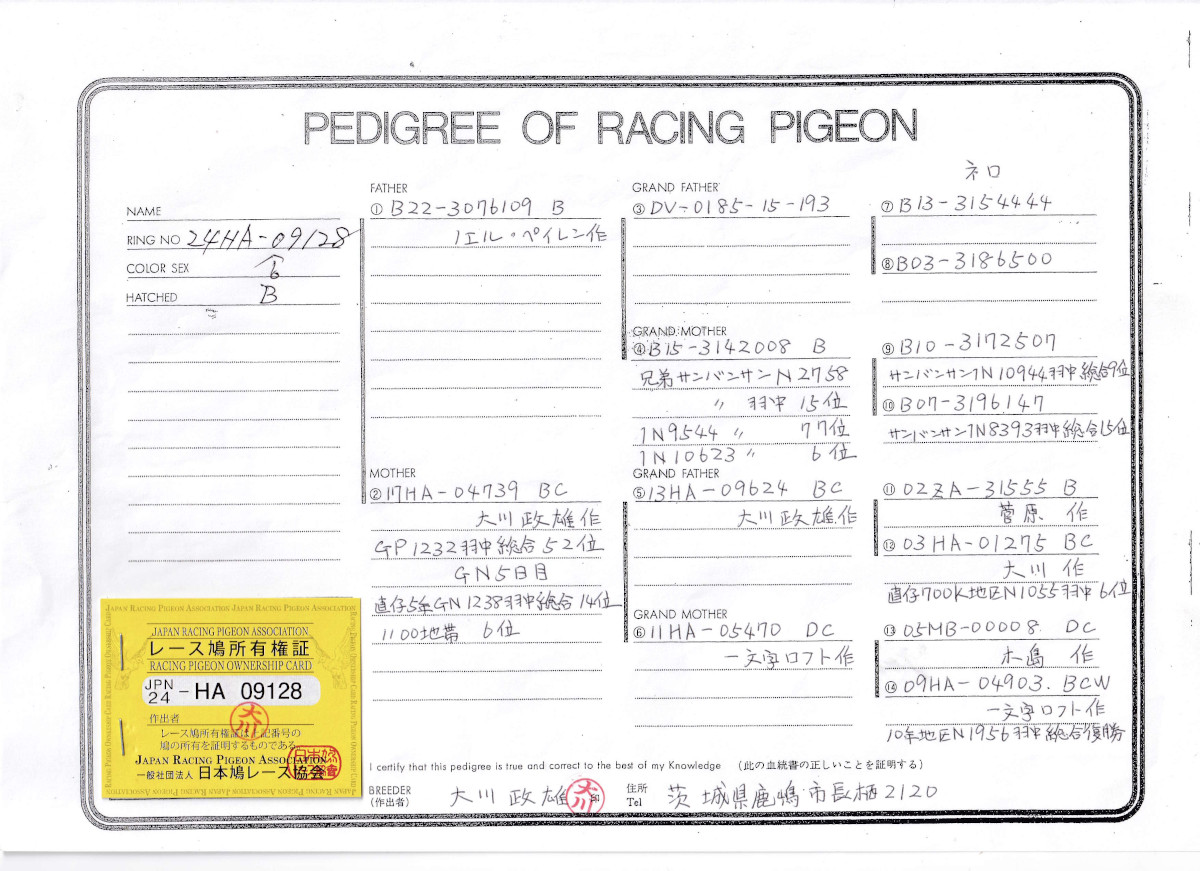 PEDIGREE OF RACING PIGEON
NAME
RING NO 24HA-09128
COLOR SEX
HATCHED B
FATHER
① B22-3076109 B
ノエル・ペイレン作
MOTHER
② 17HA-04739 BC
大川政雄作
GP1232羽中総合52位
GN5日目
直仔5年GN1238羽中総合14位
1100地帯 6位
GRAND FATHER
③ DV-0185-15-193
GRAND MOTHER
④ B15-3142008 B
兄弟サンバンサンN2758
〃 羽中 15位
IN9544 〃 77位
IN10623 〃 6位
GRAND FATHER
⑤ 13HA-09624 BC
大川政雄作
GRAND MOTHER
⑥ 11HA-05470 DC
一文字ロフト作
ネロ
⑦ B13-3154444
⑧ B03-3186500
⑨ B10-3172507
サンバンサンIN10944羽中総合9位
⑩ B07-3196147
サンバンサンIN8393羽中総合15位
⑪ 02ZA-31555 B
菅原 作
⑫ 03HA-01275 BC
大川 作
直仔700K地区N1055羽中6位
⑬ 05MB-00008 DC
木島 作
⑭ 09HA-04903. BCW
一文字ロフト作
10年地区N1956羽中総合優勝
JAPAN RACING PIGEON ASSOCIATION JAPAN RACING PIGEON ASSOCIATION
JAPAN RACING PIGEON ASSOCIATION
レース鳩所有権証
RACING PIGEON OWNERSHIP CARD
JPN 24 -HA 09128
作出者
大川
レース鳩所有権証は上記番号の
鳩の所有を証明するものである
JAPAN RACING PIGEON ASSOCIATION
一般社団法人 日本鳩レース協会
I certify that this pedigree is true and correct to the best of my Knowledge (此の血統書の正しいことを証明する)
BREEDER (作出者) 大川政雄 印 大川
住所 Tel 茨城県鹿嶋市長栖2120